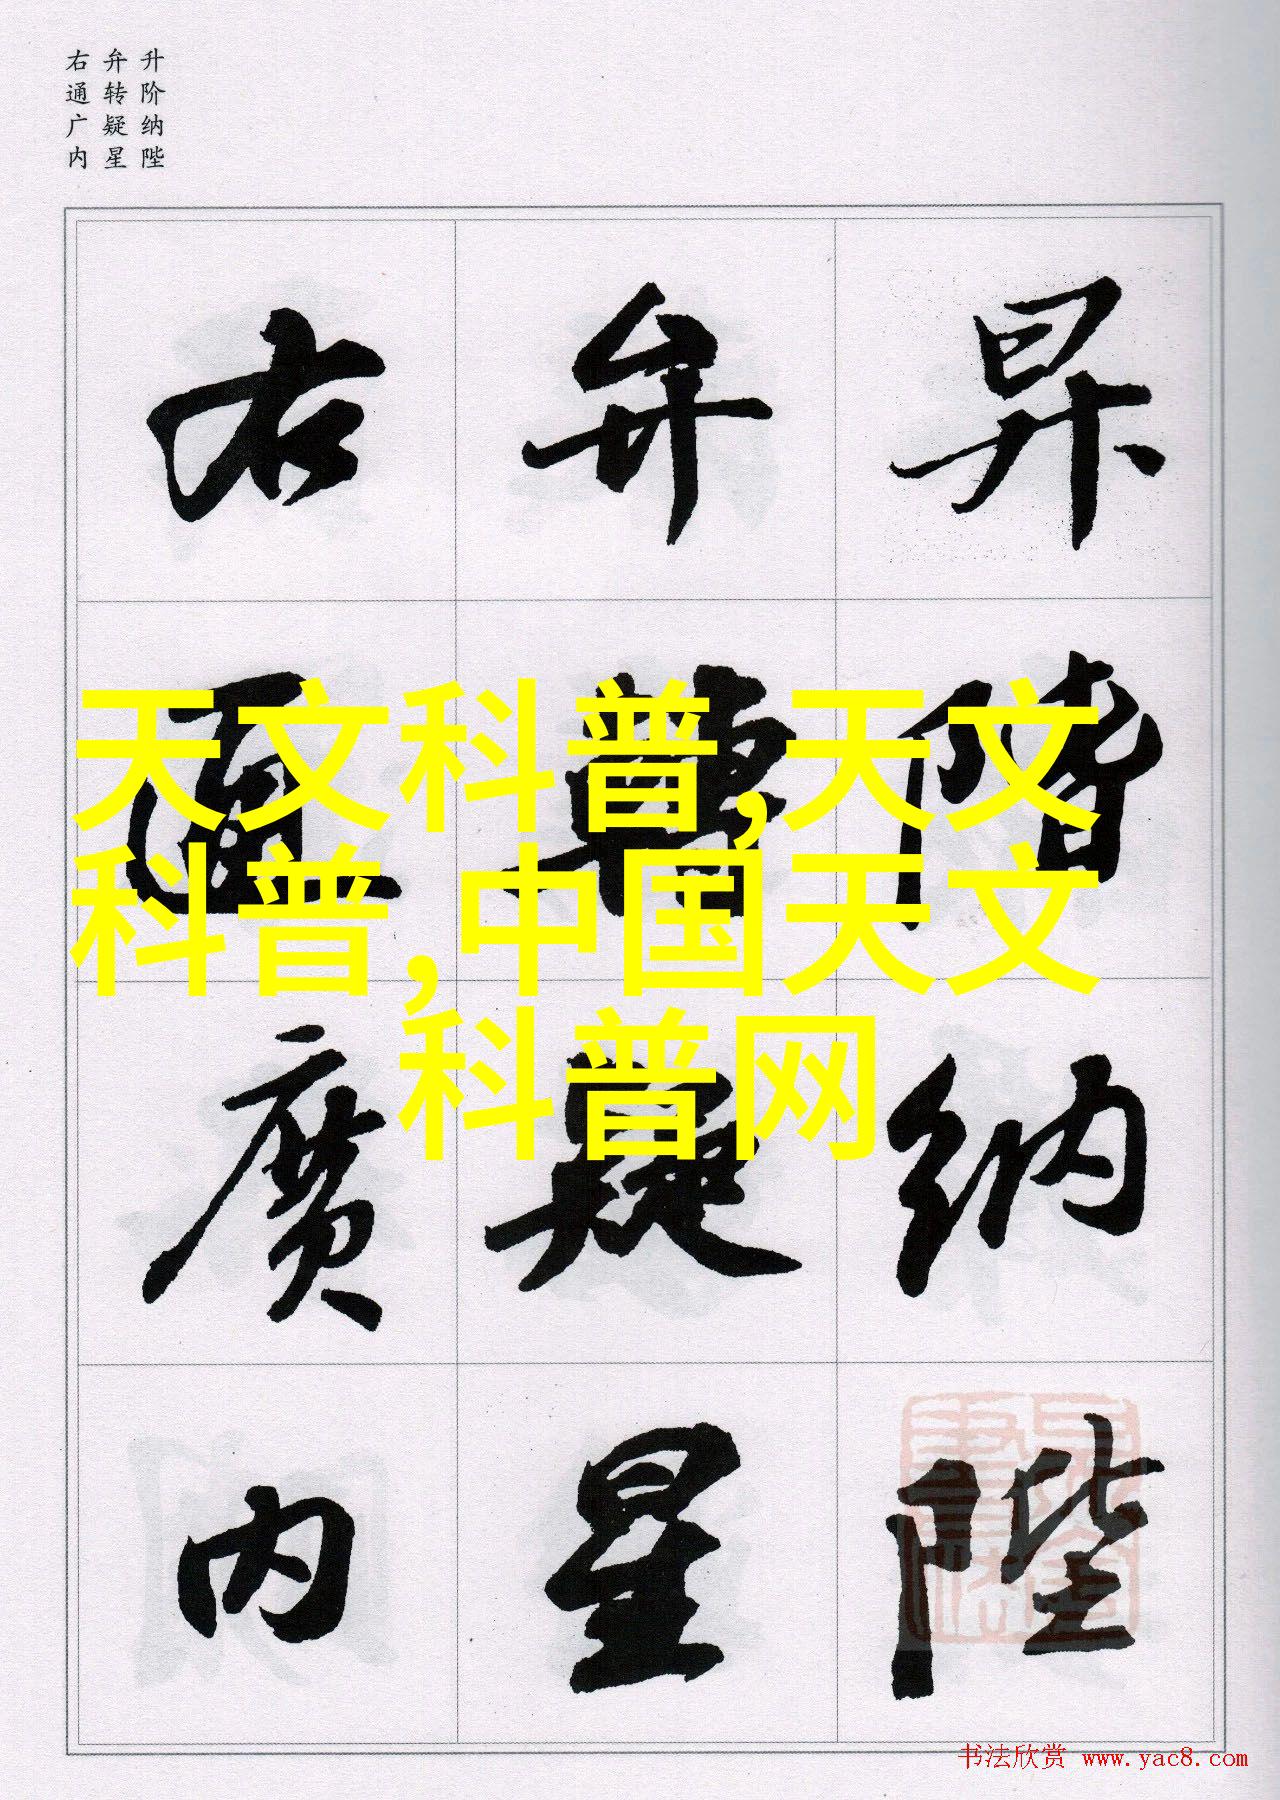 升阶纳陛
弁转疑星
右通广内
昇階納陛
弁轉疑星
右通廣内
天文科普,天文
科普,中国天文
科普网
书法欣赏 www.yac8.com